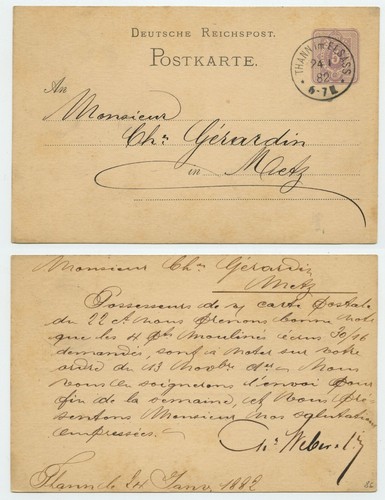 DEUTSCHE REICHSPOST.
POSTKARTE.
THANN im ELSASS
24 1
82
6-7 N.
An
Monsieur
Chs Gérardin
in Metz
Monsieur Chs Gérardin
Metz
Possesseurs de v/ carte postale
du 22 ct nous prenons bonne note
que les 4 pts moulinés écrus 30/16
demandés, sont à noter sur votre
ordre du 13 Novbre der Nous
vous en soignerons l'envoi pour
fin de la semaine, et vous pré-
sentons Monsieur nos salutations
empressées.
Chs Weber
Thann le 24 Janv. 1882